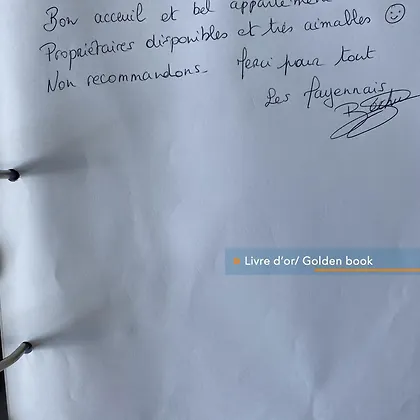 Bon acceuil et bel appartement
Propriétaires disponibles et très aimables
Non recommandons. Merci pour tout
Les fayennais
Livre d'or/ Golden book